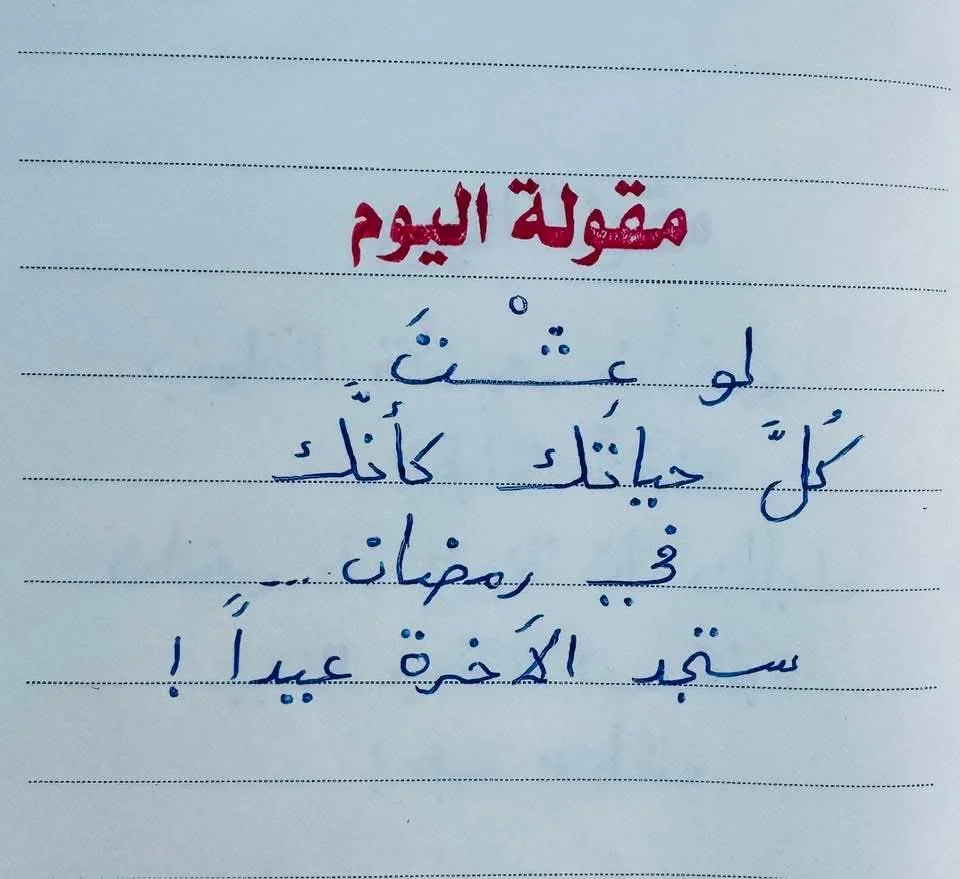 مقولة اليوم
لو عشْتَ
كُلَّ حياتَك كأنَّك
في رمضان ...
ستجد الأَخرة عيداً !